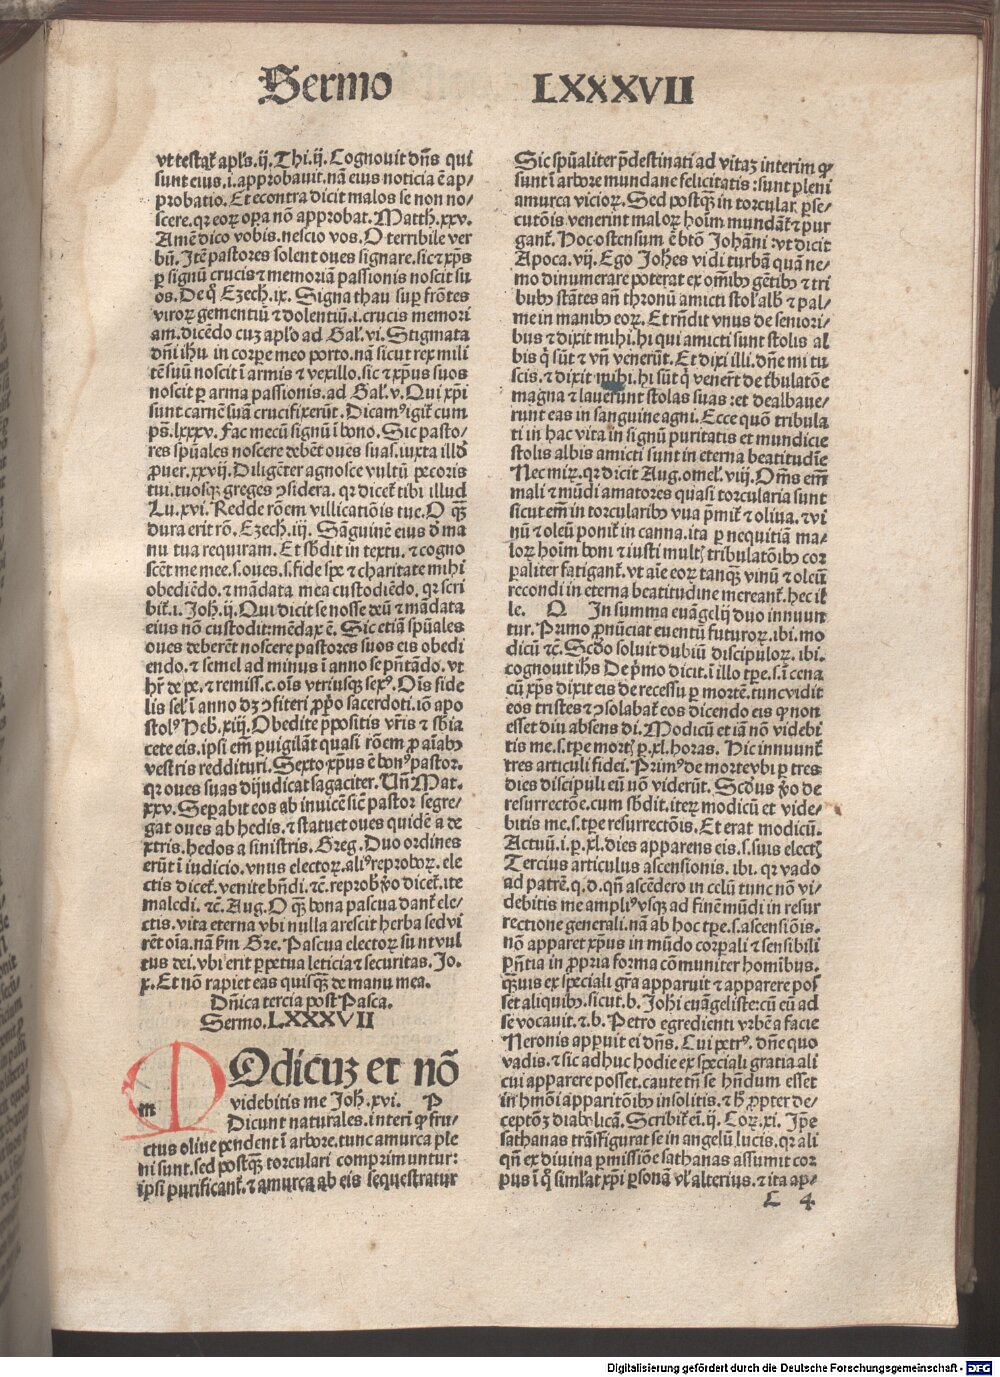 Sermo LXXXVII
vt testat̃ apl's.ij.Thi.ij.Cognouit dñs qui
sunt eius.i.approbauit.nã eius noticia ẽ ap⸗
probatio.Et econtra dicit malos se non no⸗
scere.qr eoꝝ oꝑa nõ approbat.Matth.xxv.
Amẽ dico vobis.nescio vos.O terribile ver
bũ.Itẽ pastores solent oues signare.sic ⁊ xp̃s
ꝑ signũ crucis ⁊ memoriam passionis noscit su
os.De q̊ Ezech.ix. Signa thau suꝑ frõtes
viroꝝ gementiũ ⁊ dolentiũ.i.crucis memori
am.dicẽdo cuz apl'o ad Gal'.vi.Stigmata
dñi ihũ in corpe meo porto.nã sicut rex mili
tẽ suũ noscit ĩ armis ⁊ vexillo.sic ⁊ xp̃us suos
noscit ꝑ arma passionis.ad Gal'.v.Qui xp̃i
sunt carnẽ suã crucifixerũt.Dicamꝰ igit̃ cum
ps̃.lxxxv.Fac mecũ signũ ĩ bono.Sic pasto⸗
res spũales noscere debẽt oues suas.iuxta illđ
ꝓuer.xxvij.Diligẽter agnosce vultũ pecoris
tui.tuosqꝫ greges ꝯsidera.qr dicet̃ tibi illud
Lu.xvi.Redde rõem villicatiõis tue.O qꝫ̃
dura erit rõ.Ezech.iij.Sãguinẽ eius đ ma
nu tua requiram.Et sb̃dit in textu.⁊ cogno
scẽt me mee.s.oues.s.fide spe ⁊ charitate mihi
obediẽdo.⁊ mãdata mea custodiẽdo.qr scri
bit̃.i.Joh̃.ij.Qui dicit se nosse deũ ⁊ mãdata
eius nõ custodit:mẽdax ẽ.Sic etiã spũales
oues deberẽt noscere pastores suos eis obedi
endo.⁊ semel ad minus ĩ anno se pñtãdo.vt
hr̃ de pe.⁊ remiss.c.oĩs vtriusqꝫ sexꝰ.Oĩs fide
lis sel' ĩ anno dꝫ ꝯfiteri ꝓp̃o sacerdoti.iõ apo
stolꝰ Heb̃.xiij.Obedite p̃positis vr̃is ⁊ sb̃ia
cete eis.ipsi em̃ ꝑuigilãt quasi rõem ꝓ aĩabꝫ
vestris reddituri.Sexto xp̃us ẽ bonꝰ pastor.
qr oues suas dijudicat sagaciter.Uñ Mat.
xxv.Seꝑabit eos ab inuicẽ sic̃ pastor segre⸗
gat oues ab hedis.⁊ statuet oues quidẽ a de
xtris.hedos a sinistris.Greg.Duo ordines
erũt ĩ iudicio.vnus electoꝝ.aliꝰ reproboꝝ.ele
ctis dicet̃.venite bñdi.⁊c.reprob̃ ṽo dicet̃.ite
maledi.⁊c.Aug.O qꝫ̃ bona pascua dant̃ ele⸗
ctis.vita eterna vbi nulla arescit herba sed vi
rẽt oĩa.nã ẜm Gre.Pascua electoꝝ sunt vul
tus dei.vbi erit ꝑpetua leticia ⁊ securitas.Jo.
x.Et nõ rapiet eas quisqꝫ de manu mea.
Dñica tercia post Pasca.
Sermo.LXXXVII
m
MOdicuz et nõ
videbitis me Joh̃.xvi. P
Dicunt naturales.interĩ qꝫ fru⸗
ctus oliue pendent ĩ arbore.tunc amurca ple
ni sunt.sed postqꝫ̃ torculari comprimuntur:
ip̃si purificant̃.⁊ amurca ab eis sequestratur
Sic spũaliter p̃destinati ad vitaz interim qꝫ
sunt ĩ arbore mundane felicitatis:sunt pleni
amurca vicioꝝ.Sed postqꝫ̃ in torcular ꝑse⸗
cutõis venerint maloꝝ hoĩm mundãt̃ ⁊ pur
gant̃.Hoc ostensum ẽ btõ Johãni:vt dicit
Apoca.vij.Ego Joh̃es vidi turbã quã ne⸗
mo dinumerare poterat ex om̃ibꝫ gẽtibꝫ ⁊ tri
bubꝫ stãtes añ thronũ amicti stol' alb̃ ⁊ pal⸗
me in manibꝫ eoꝝ.Et rñdit vnus de seniori⸗
bus ⁊ dixit mihi.hi qui amicti sunt stolis al
bis q̃ sũt ⁊ vñ venerũt.Et dixi illi.dñe mi tu
scis.⁊ dixit mihi.hi sũt q̃ venerũt de tb̃ulatõe
magna ⁊ lauerunt stolas suas:et dealbaue⸗
runt eas in sanguine agni.Ecce quõ tribula
ti in hac vita in signũ puritatis et mundicie
stolis albis amicti sunt in eterna beatitudĩe
Nec miꝝ.qr dicit Aug.omel'.viij.Om̃s em̃
mali ⁊ mũdi amatores quasi torcularia sunt
sicut em̃ in torcularibꝫ vua p̃mit̃ ⁊ oliua.⁊ vi
nũ ⁊ oleũ ponit̃ in canna.ita ꝑ nequitiã ma⸗
loꝝ hoĩm boni ⁊ iusti multʒ tribulatõibꝫ cor
ꝑaliter fatigant̃.vt aĩe eoꝝ tanqꝫ̃ vinũ ⁊ oleũ
recondi in eterna beatitudine mereant̃.hec il
le. Q In summa euãgelij duo innuun
tur.Primo ꝓnũciat euentũ futuroꝝ.ibi.mo
dicũ ⁊c.Scđo soluit dubiũ discipuloꝝ.ibi.
cognouit ih̃s De p̃mo dicit.ĩ illo tꝑe.s.ĩ cena
cũ xp̃s dixit eis de recessu ꝑ mortẽ.tunc vidit
eos tristes ⁊ ꝯsolabat̃ eos dicendo eis qꝫ non
esset diu absens di.Modicũ et iã nõ videbi
tis me.s.tꝑe mortʒ ꝑ.xl.horas.Hic innuunt̃
tres articuli fidei.Primꝰ de morte vbi ꝑ tres
dies discipuli eũ nõ viderũt.Scđus ṽo de
resurrectõe.cum sb̃dit.iteꝝ modicũ et vide⸗
bitis me.s.tꝑe resurrectõis.Et erat modicũ.
Actuũ.i.ꝑ.xl.dies apparens eis.s.suis electʒ
Tercius articulus ascensionis.ibi.qr vado
ad patrẽ.q.d.qñ ascẽdero in celũ tunc nõ vi⸗
debitis me ampliꝰ vsqꝫ ad finẽ mũdi in resur
rectione generali.nã ab hoc tꝑe.s.ascensiõis.
nõ apparet xp̃us in mũdo corꝑali ⁊ sensibili
pñtia in ꝓpria forma cõmuniter hominibus.
qꝫ̃uis ex speciali gr̃a apparuit ⁊ apparere pos
set aliquibꝫ.sicut.b.Joh̃i euãgeliste:cũ eũ ad
se vocauit.⁊.b.Petro egredienti vrbẽ a facie
Neronis apꝑuit ei dñs.Cui petrꝰ.dñe quo
vadis.⁊ sic adhuc hodie ex speciali gratia ali
cui apparere posset.caute tñ se hñdum esset
in hm̃õi apparitõibꝫ insolitis.⁊ h̃ ꝓpter de⸗
ceptõʒ diabolicã.Scribit̃ eĩ.ij.Coꝝ.xi.Ip̃e
sathanas trãsfigurat se in angelũ lucis.qr ali
qñ ex diuina ꝑmissiõe sathanas assumit cor
pus ĩ q̊ simlat̃ xp̃i ꝑsonã vl' alterius.⁊ ita ap⸗
L 4
Digitalisierung gefördert durch die Deutsche Forschungsgemeinschaft - DFG